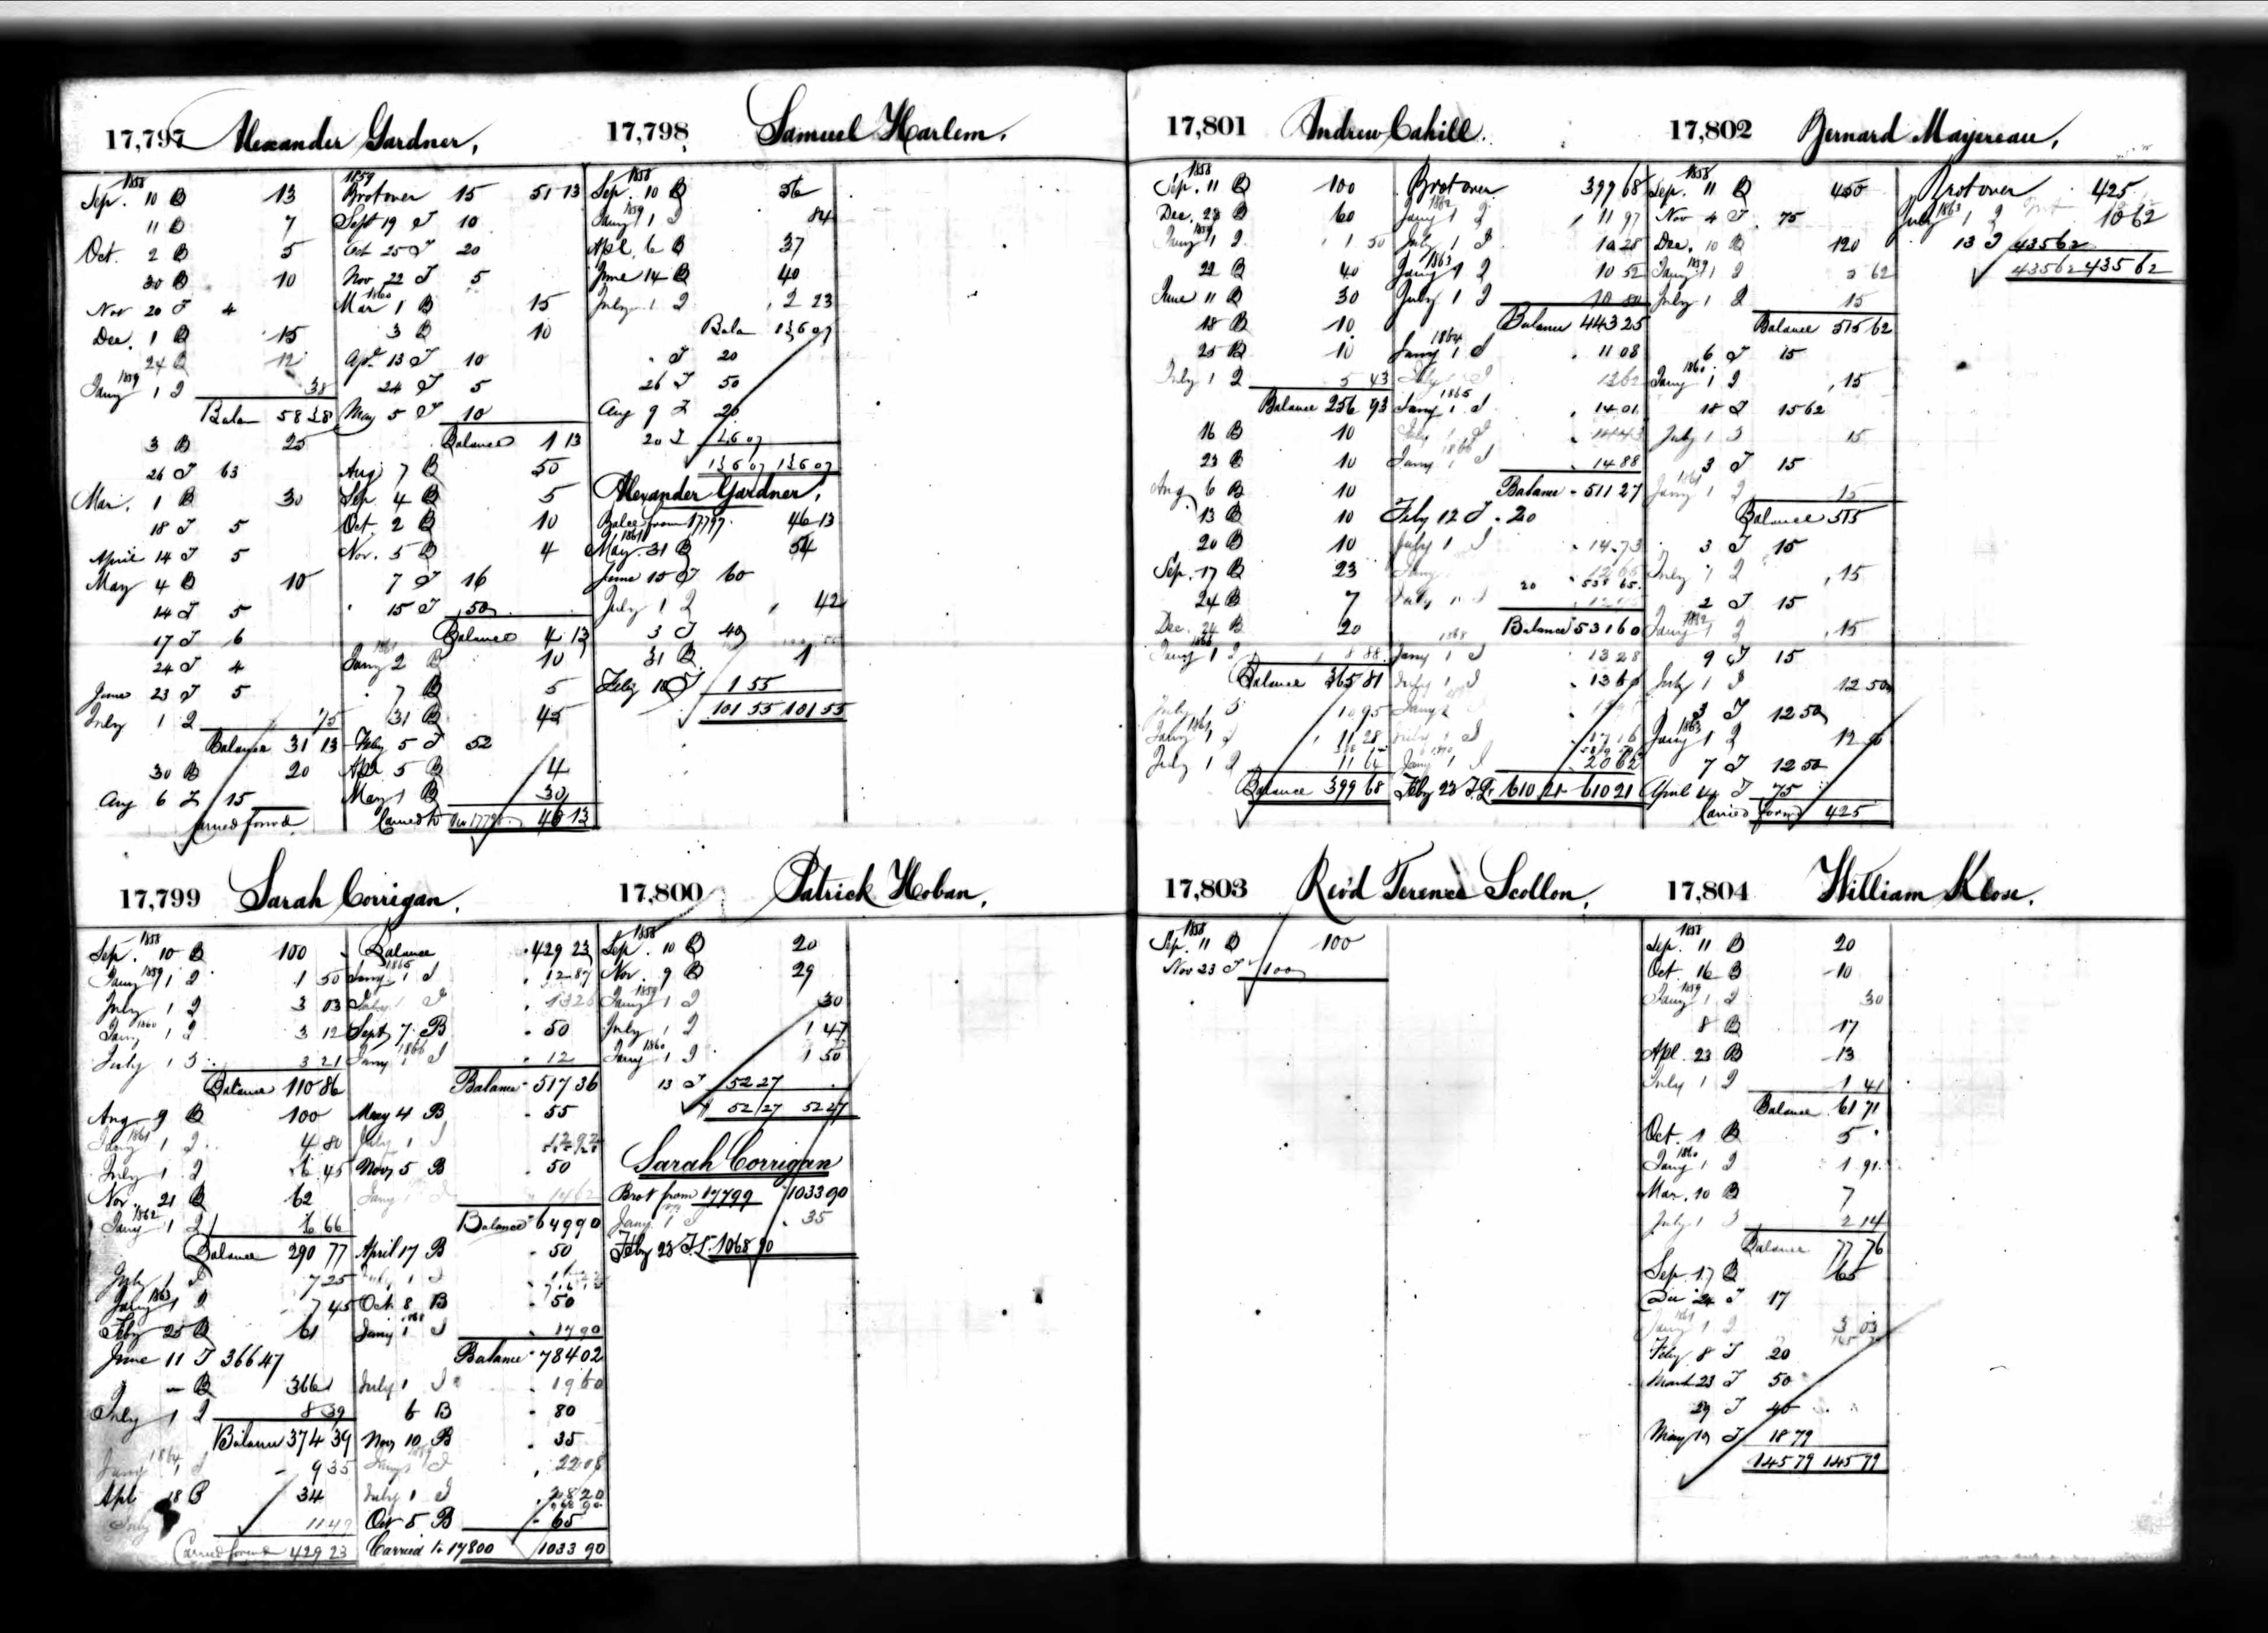 17,797 Alexander Gardner.
1858
Sep. 10 B 13
11 B 7
Oct. 2 B 5
30 B 10
Nov 20 T 4
Dec. 1 B 15
24 B 12
1859
Jany 1 I 38
Balan 58 38
3 B 25
26 T 63
Mar. 1 B 30
18 T 5
April 14 T 5
May 4 B 10
14 T 5
17 T 6
24 T 4
June 23 T 5
July 1 I 75
Balance 31 13
30 B 20
Aug 6 T 15
Carried forwd.
1859
Brot over 15 51 13
Sept 19 T 10
Oct 25 T 20
Nov 22 T 5
1860
Mar 1 B 15
3 B 10
Apl 13 T 10
24 T 5
May 5 T 10
Balance 1 13
Aug 7 B 50
Sep. 4 B 5
Oct. 2 B 10
Nov. 5 B 4
7 T 16
15 T 50
Balance 4 13
1861
Jany 2 B 10
7 B 5
31 B 45
Feby 5 T 52
Apl 5 B 4
May 1 B 30
Carried to 46 13
17,798 Samuel Harlem.
1858
Sep. 10 B 56
1859
Jany 1 I 84
Apl. 6 B 37
June 14 B 40
July 1 I 2 23
Balan 136 07
" T 20
26 T 50
Aug 9 T 20
20 T 46 07
136 07 136 07
Alexander Gardner.
Balce from 17797. 46 13
1861
May 31 B 54
June 15 T 60
July 1 I 42
3 T 40
31 B 1
Feby 18 T 1 55
101 55 101 55
17,799 Sarah Corrigan.
1858
Sep. 10 B 100
1859
Jany 1 I 1 50
July 1 I 3 03
1860
Jany 1 I 3 12
July 1 I 3 21
Balance 110 86
Aug. 9 B 100
1861
Jany 1 I 4 80
July 1 I 6 45
Nov. 21 B 62
1862
Jany 1 I 6 66
Balance 290 77
July 1 I 7 25
1863
Jany 1 I 7 45
Feby 25 B 61
June 11 T 366 47
" B 366
July 1 I 8 39
Balance 374 39
1864
Jany 1 I 9 35
Apl 18 B 34
July 11 49
Carried forward 429 23
Balance 429 23
1865
Jany 1 I 12 87
July 1 I 13 26
Sept 7 B 50
1866
Jany 1 I 12
Balance 517 36
May 4 B 55
July 1 I 12 92
Nov 5 B 50
Jany 1 I 14 62
Balance 649 90
April 17 B 50
July 1 I
Oct 8 B 50
1868
Jany 1 I 17 90
Balance 784 02
July 1 I 19 60
6 B 80
Nov 10 B 35
1869
Jany 1 I 22 08
July 1 I 28 20
968 90
Oct 5 B 65
Carried to 17800 1033 90
17,800 Patrick Hoban.
1858
Sep. 10 B 20
Nov. 9 B 29
1859
Jany 1 I 30
July 1 I 1 47
1860
Jany 1 I 1 50
13 T 52 27
52 27 52 27
Sarah Corrigan
Brot from 17799 1033 90
Jany 1 I 35
Feby 23 T. 1068 90
17,801 Andrew Cahill.
1858
Sep. 11 B 100
Dec. 28 B 60
1859
Jany 1 I 1 50
22 B 40
June 11 B 30
18 B 10
25 B 10
July 1 I 5 43
Balance 256 93
16 B 10
23 B 10
Aug 6 B 10
13 B 10
20 B 10
Sep. 17 B 23
24 B 7
Dec. 24 B 20
1860
Jany 1 I 8 88
Balance 365 81
July 1 I 10 95
1861
Jany 1 I 11 28
July 1 I 11 64
Balance 399 68
Brot over 399 68
1862
Jany 1 I 11 97
July 1 I 10 28
1863
Jany 1 I 10 52
July 1 I 10 80
Balance 443 25
1864
Jany 1 I 11 08
July 1 I 13 62
1865
Jany 1 I 14 01
July 1 I 14 43
1866
Jany 1 I 14 88
Balance 511 27
Feby 12 T 20
July 1 I 14.73
Jany 12 65
20 538 65
July 1 I
Balance 531 60
1868
Jany 1 I 13 28
July 1 I 13 60
Jany 1
July 1 I 17 16
1870
Jany 1 I 20 62
Feby 23 T. 610 21 610 21
17,802 Bernard Mayereau.
1858
Sep. 11 B 450
Nov 4 T 75
Dec. 10 B 120
1859
Jany 1 I 5 62
July 1 I 15
Balance 515 62
6 T 15
1860
Jany 1 I 15
18 T 15 62
July 1 I 15
3 T 15
1861
Jany 1 I 15
Balance 515
3 T 15
July 1 I 15
2 T 15
1862
Jany 1 I 15
9 T 15
July 1 I 12 50
3 T 12 50
1863
Jany 1 I 12 50
7 T 12 50
April 4 T 75
Carried forwd 425
Brot over 425
1863
July 1 I 10 62
13 T 435 62
435 62 435 62
17,803 Rev'd Terence Scollon.
1858
Sep. 11 B 100
Nov 23 T 100
17,804 William Klose.
1858
Sep. 11 B 20
Oct. 16 B 10
1859
Jany 1 I 30
8 B 17
Apl. 23 B 13
July 1 I 1 41
Balance 61 71
Oct. 1 B 5
1860
Jany 1 I 1 91
Mar. 10 B 7
July 1 I 2 14
Balance 77 76
Sep. 17 B 65
Dec 24 T 17
1861
Jany 1 I 3 03
Feby 8 T 20
March 23 T 50
29 T 40
May 10 T 18 79
145 79 145 79